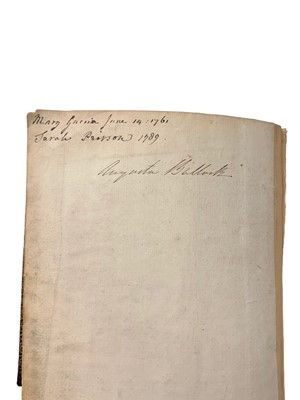 Mary Gurnia June 14: 1761
Sarah Pearson 1789
Augusta Bullock